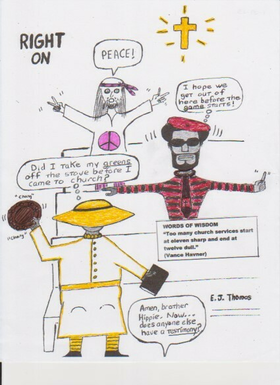 RIGHT
ON
PEACE!
I hope we
get out of
here before the
game starts!
Did I take my greens
off the stove before I
came to church?
"chang"
"chang"
WORDS OF WISDOM
"Too many church services start
at eleven sharp and end at
twelve dull."
(Vance Havner)
E.J. Thomas
Amen, brother
Hippie. Now...
does anyone else
have a testimony?